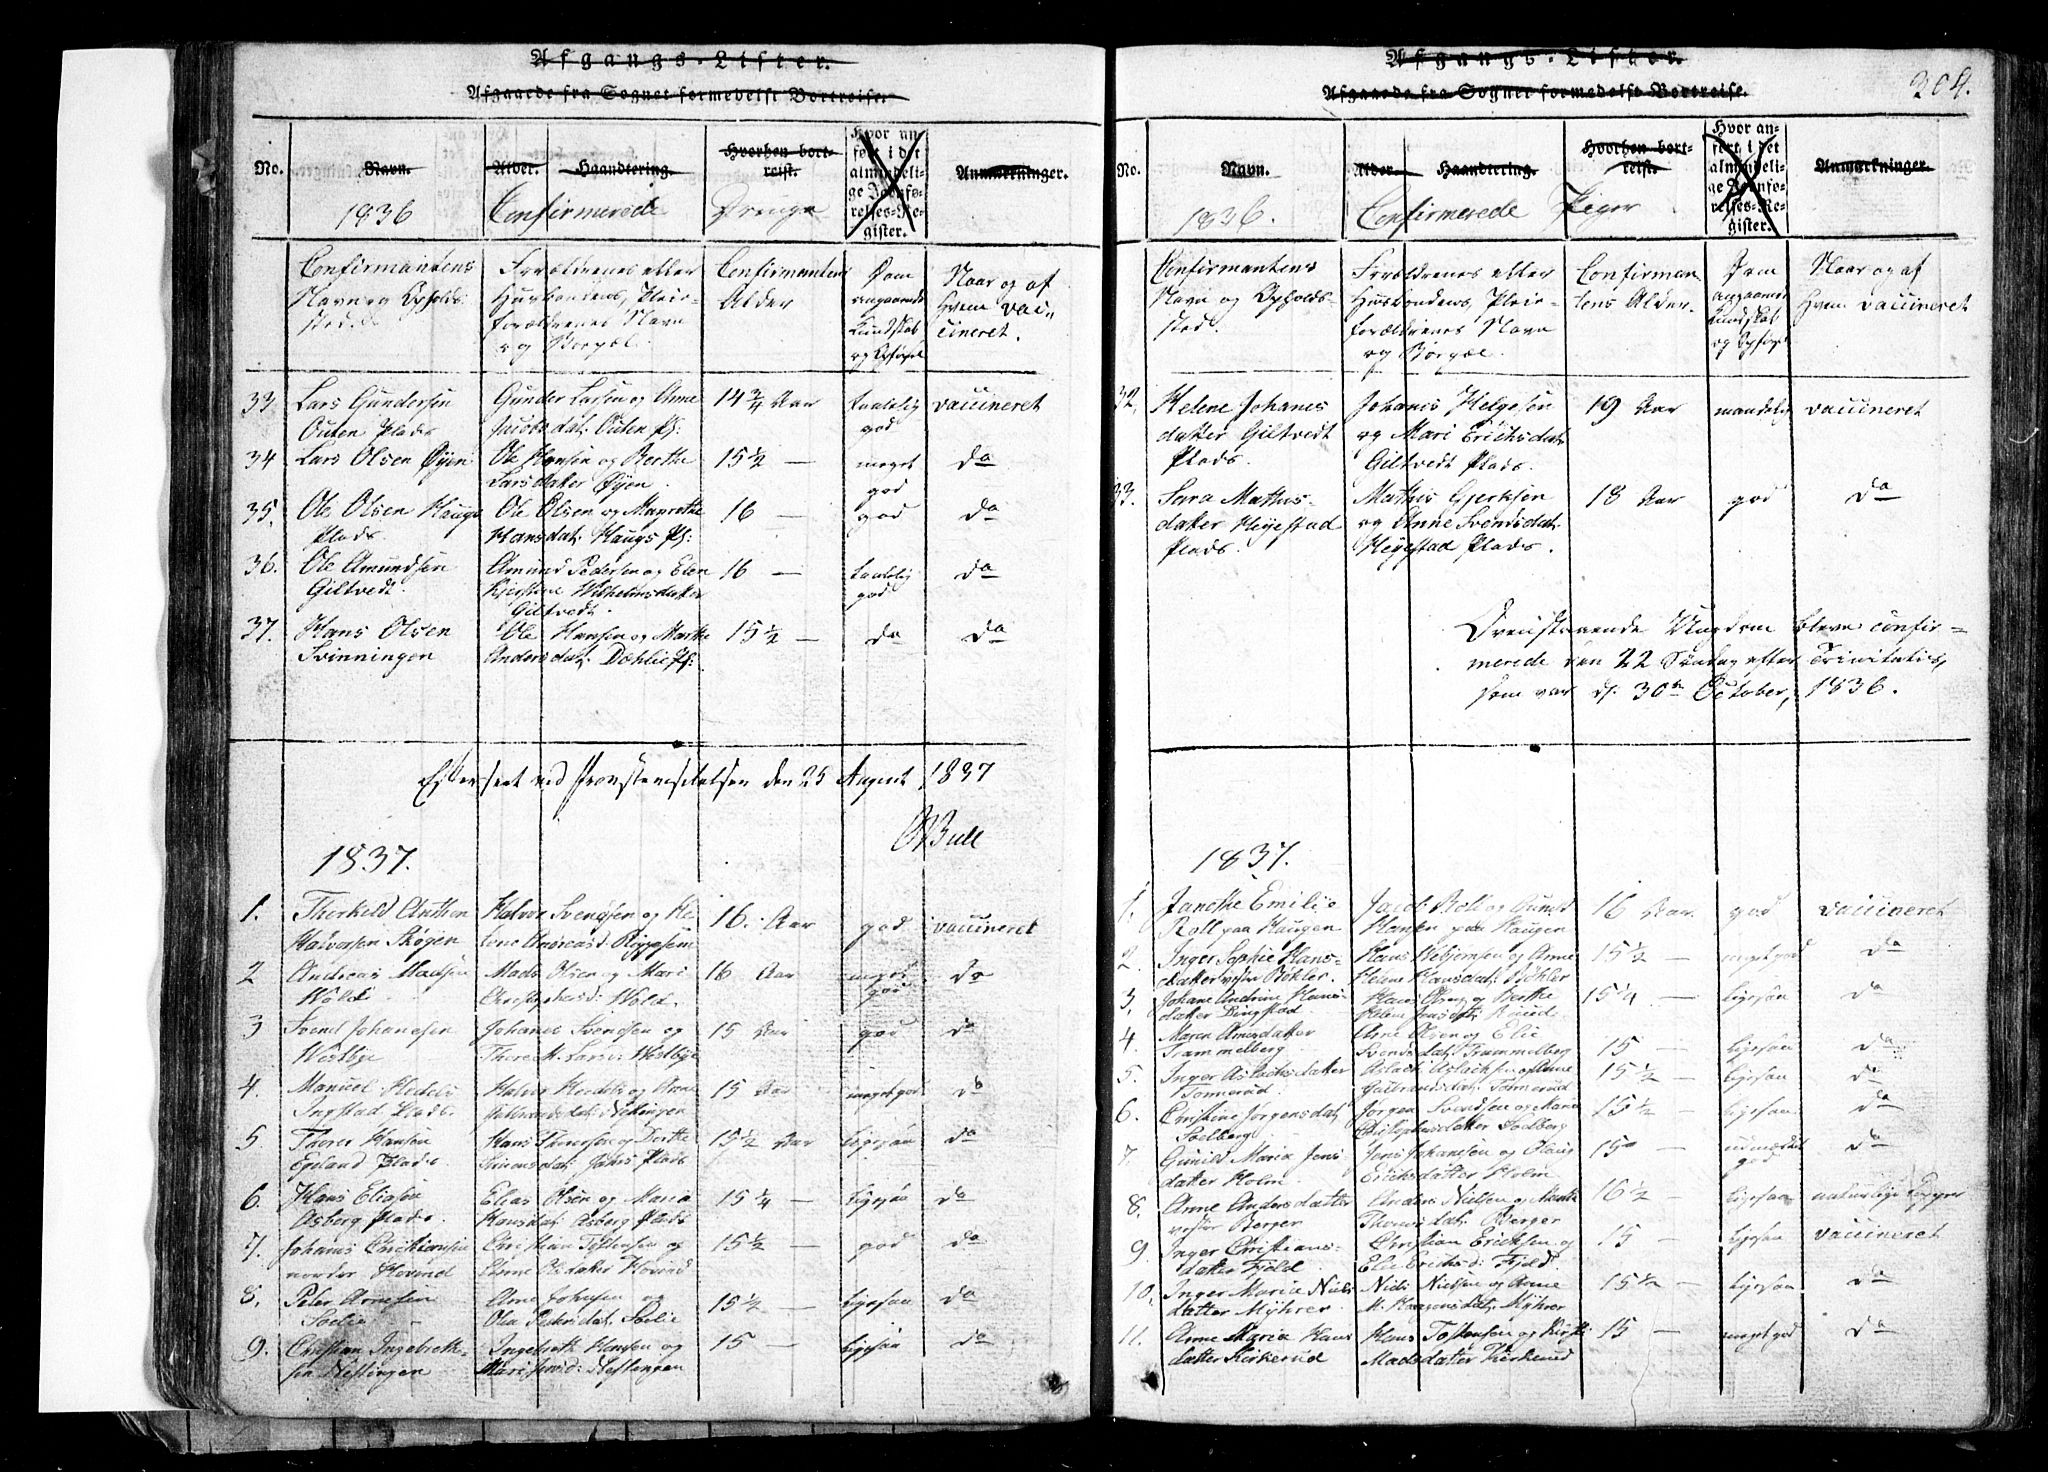 Afgangs-Lister.
Afgaaede fra Sognet formedelst Bortreise.
No. Navn. Alder. Haandtering. Hvorhen bortreist. Hvor anført i det almindelige Jevnførelses-Register. Anmærkninger.
1836 Confirmerede Drenge
Confirmantens Navn og Opholdssted. Forældrenes eller Husbondens, Pleieforældrenes Navn og Bopæl. Confirmantens Alder Dom angaaende Kundskab og Opførsel Naar og af Hvem vaccineret.
33. Lars Gundersen Outen Plads Gunder Larsen og Anne Jacobsdat: Outen Pl: 14 3/4 Aar taalelig god vaccineret
34 Lars Olsen Øyen Ole Hansen og Berthe Larsdatter Øyen. 15 1/2 — meget god do
35. Ole Olsen Haugs Plads Ole Olsen og Magrethe Hansdat: Haugs Pl: 16 — god do
36. Ole Amundsen Giltvedt. Amund Pedersen og Elen Kjerstine Wilhelmsdatter Giltvedt. 16 — taalelig god do
37. Hans Olsen Svinningen Ole Hansen og Marthe Andersdat: Dæhlie Pl: 15 1/2 — do do
Efterseet ved Provstevisitatsen den 25 August 1837
Bull
1837.
1. Therkild Anthon Halvorsen Skogen Halvor Svendsen og Helene Andreasd: 16. Aar god vaccineret
2 Andreas Madsen Wold Mads Olsen og Mari Christophersd: Wold. 16 Aar meget god do
3 Svend Johanesen Westbye Johanes Svendsen og Thore M. Larsd: Westbye 15 Aar god do
4. Manuel Ingstad Plads. Halvor og Anne 15 Aar meget god do
5. Thorer Hansen Egeland Plads. Hans Thoresen og Berthe Simensdat: Plads 15 1/2 Aar ligesaa do
6. Hans Eliasen Asberg Plads. Elias Olsen og Maria Hansdat: Asberg Plads 15 1/4 — ligesaa do
7. Johanes Christiansen nordre Hovind Christian Tostensen og Anne Olsdatter Hovind 15 1/2 — god do
8. Peter Arnesen Soelie Arne Johnsen og Olea Pedersdat: Soelie 15 1/2 — ligesaa do
9. Christian Ingebrethsen Nestingen Ingebreth Hansen og Mari Nestingen 15 — ligesaa do
Afgangs-Lister.
304.
Afgaaede fra Sognet formedelst Bortreise.
No. Navn. Alder. Haandtering. Hvorhen bortreist. Hvor anført i det almindelige Jevnførelses-Register. Anmærkninger.
1836. Confirmerede Piger.
Confirmantens Navn og Opholdssted. Forældrenes eller Husbondens, Pleieforældrenes Navn og Bopæl. Confirmantens Alder. Dom angaaende Kundskab og Opførsel Naar og af Hvem vaccineret
32. Helene Johanesdatter Giltvedt Plads. Johanes Helgesen og Mari Erichsdat: Giltvedt Plads. 19 Aar maadelig vaccineret
33. Sara Mathisdatter Heyestad Plads. Mathis Gjertsen og Anne Svendsdat: Heyestad Plads. 18 Aar god do
Ovenstaaende Ungdom bleve confirmerede den 22 Søndag efter Trinitatis,
som var d. 30te October, 1836.
1837.
1. Emilie Roll paa Haugen Jacob Roll og Hansen paa Haugen 16 Aar god vaccineret
2. Inger Sophie Hansdatter vestre Bøhler. Hans og Anne Helene Hansdat: Bøhler 15 1/2 — meget god do
3. Johane Andrine Hansdatter Hans og Berthe Helene Jensdat: 15 1/4 — ligesaa do
4. Maren Arnesdatter Trammelberg Arne Olsen og Elie Svendsdat: Trammelberg 15 — ligesaa do
5. Inger Aslachsdatter Tomerud Aslach Aslachsen og Anne Gulbrandsdat: Tomerud 15 1/2 — ligesaa do
6. Christine Jørgensdat: Soelberg Jørgen Svendsen og Maria Christophersdatter Soelberg 15 1/2 — ligesaa do
7. Gunild Maria Jensdatter Holm Jens Johanesen og Erichsdatter Holm 15 — udmærket god do
8. Anne Andersdatter vestre Berger Anders Nielsen og Marthe Thoresdat: Berger 16 1/2 — ligesaa naturlige Kopper
9. Inger Christiansdatter Fjeld Christian Ericksen og Elie Erichsd: Fjeld. 15 — ligesaa vaccineret
10. Inger Maria Nielsdatter Myhrer Niels Nielsen og Anne M. Kaagensdat: Myhrer 15 1/2 — ligesaa do
11. Anne Maria Hansdatter Kirkerud Hans Tostensen og Kirsti Madsdatter Kirkerud 15 — meget god do